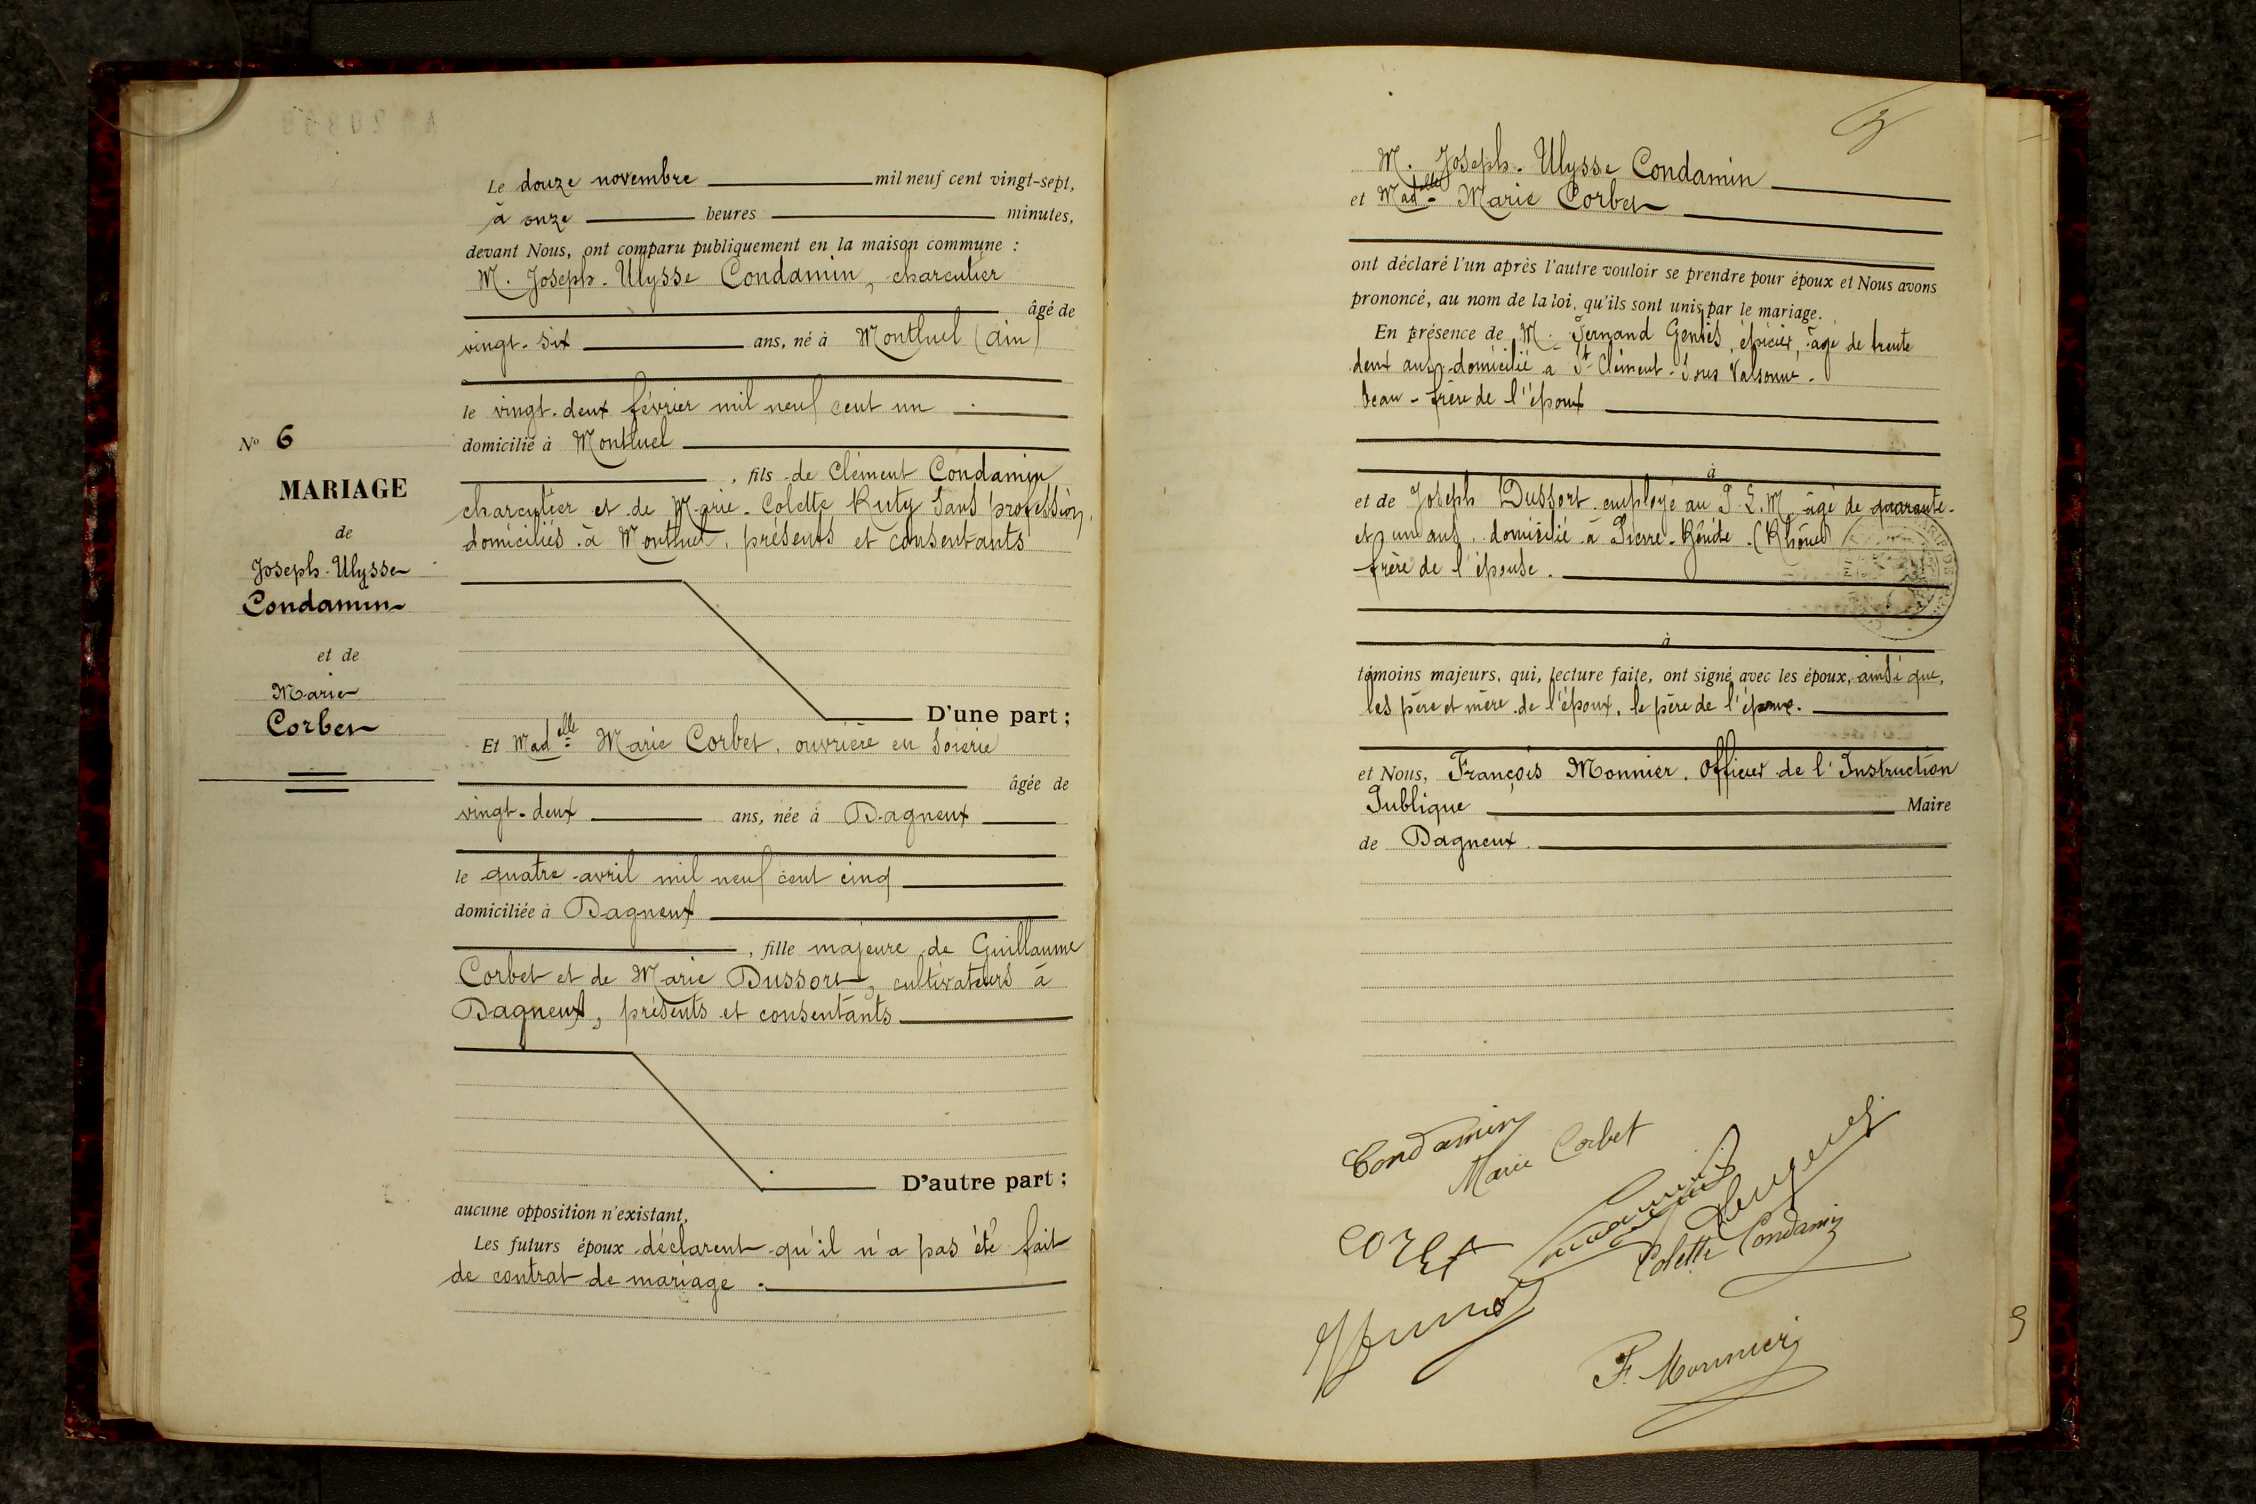 Le douze novembre mil neuf cent vingt-sept,
à onze heures minutes,
devant Nous, ont comparu publiquement en la maison commune :
M. Joseph-Ulysse Condamin, charcutier
âgé de
vingt-six ans, né à Montluel (Ain)
le vingt-deux février mil neuf cent un
domicilié à Montluel
, fils de Clément Condamin
charcutier et de Marie-Colette Ruty sans profession,
domiciliés à Montluel, présents et consentants
D'une part ;
Et Madelle Marie Corbet, ouvrière en soierie
âgée de
vingt-deux ans, née à Dagneux
le quatre avril mil neuf cent cinq
domiciliée à Dagneux
, fille majeure de Guillaume
Corbet et de Marie Dussort, cultivateurs à
Dagneux, présents et consentants
D'autre part ;
aucune opposition n'existant,
Les futurs époux déclarent qu'il n'a pas été fait
de contrat de mariage.
No 6
MARIAGE
de
Joseph-Ulysse
Condamin
et de
Marie
Corbet
M. Joseph-Ulysse Condamin
et Madelle Marie Corbet
ont déclaré l'un après l'autre vouloir se prendre pour époux et Nous avons
prononcé, au nom de la loi, qu'ils sont unis par le mariage.
En présence de M. Fernand Genès, épicier, âgé de trente
deux ans, domicilié à St Clément-Sous Valsonne.
beau-frère de l'époux
à
et de Joseph Dussort employé au P.L.M. âgé de quarante-
et un ans, domicilié à Pierre-Bénite (Rhône)
frère de l'épouse.
à
témoins majeurs, qui, lecture faite, ont signé avec les époux, ainsi que,
les père et mère de l'époux, le père de l'épouse.
et Nous, François Monnier, Officier de l'Instruction
Publique Maire
de Dagneux.
Condamin
Marie Corbet
Colette Condamin
F. Monnier